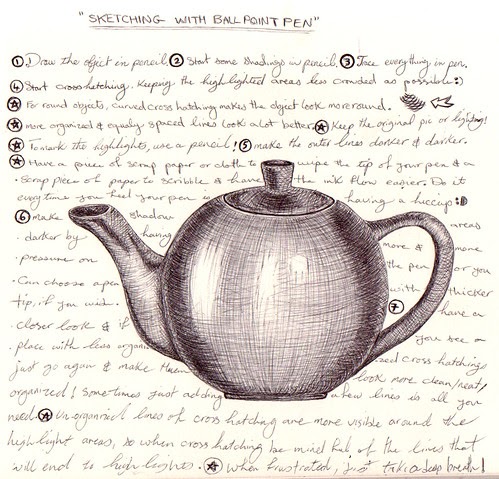 "SKETCHING WITH BALLPOINT PEN"
① Draw the object in pencil. ② Start some shadings in pencil. ③ Trace everything in pen.
④ Start cross hatching. Keeping the highlighted areas less crowded as possible :)
★ For round objects, curved cross hatching makes the object look more round.
★ more organized & equally spaced lines look a lot better. ★ Keep the original pic or lighting!
★ To mark the highlights, use a pencil! ⑤ make the outer lines darker & darker.
★ Have a piece of scrap paper or cloth to wipe the tip of your pen & a
scrap piece of paper to scribble & have the ink flow easier. Do it
everytime you feel your pen is having a hiccup :D
⑥ make shadow areas
darker by having more & more
pressure on the pen or you
can choose a pen with thicker
tip, if you wish. ⑦ have a
closer look & if you see a
place with less organized cross hatchings
just go again & make them look more clean/neat/
organized! Sometimes just adding a few lines is all you
need. ★ Un-organized lines of cross hatching are more visible around the
highlight areas, so when cross hatching be mindful of the lines that
will end to highlights. ★ When frustrated, just take a deep breath!